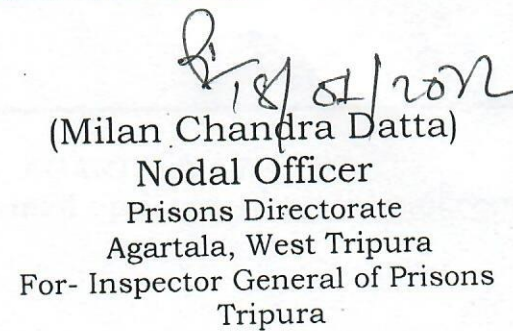 18/01/2022
(Milan Chandra Datta)
Nodal Officer
Prisons Directorate
Agartala, West Tripura
For- Inspector General of Prisons
Tripura